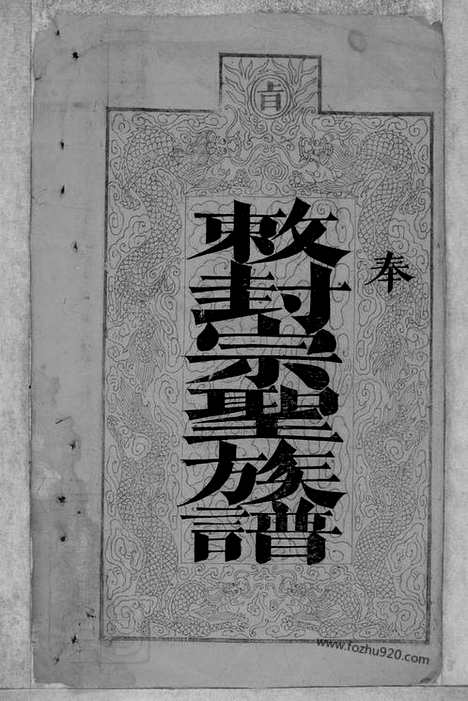 奉
敕封宗聖族譜
貞
www.fozhu920.com